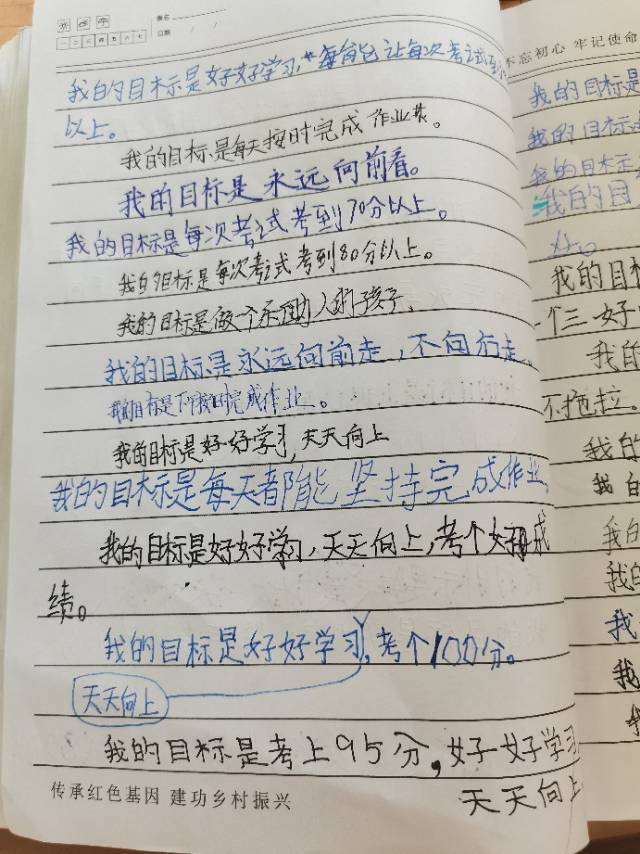 一 二 三 四 五 六 日
日期
不忘初心 牢记使命
我的目标是好好学习,每能让每次考试到
以上。
我的目标是每天按时完成作业
我的目标是永远向前看。
我的目标是每次考试考到70分以上。
我的目标是每次考试考到80分以上。
我的目标是做一个乐助人的孩子、
我的目标是永远向前走,不向后走
我的目标是 按时完成作业。
我的目标是好好学习,天天向上
我的目标是每天都能坚持完成作业
我的目标是好好学习,天天向上,考个好成
绩。
我的目标是好好学习,考个100分。
天天向上
我的目标是考上95分,好好学习
天天向上
传承红色基因 建功乡村振兴
我的目标是
我的目标
我的目标
我的目
好。
我的目标
一个三好
我的
不拖拉。
我的
我的
我的
我的
我
我
我